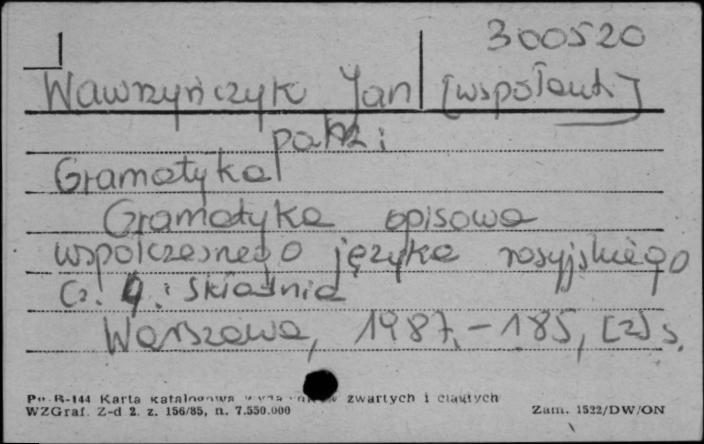 300520
Wawrzyńczyk Jan [współaut.]
patrz:
Gramatyka
Gramatyka opisowa
współczesnego języka rosyjskiego
Cz. 4: Składnia
Warszawa, 1987. - 185, [2] s.
Pu-B-144 Karta katalogowa zwartych i ciągłych
WZGraf. Z-d 2. z. 156/85, n. 7.550.000
Zam. 1522/DW/ON